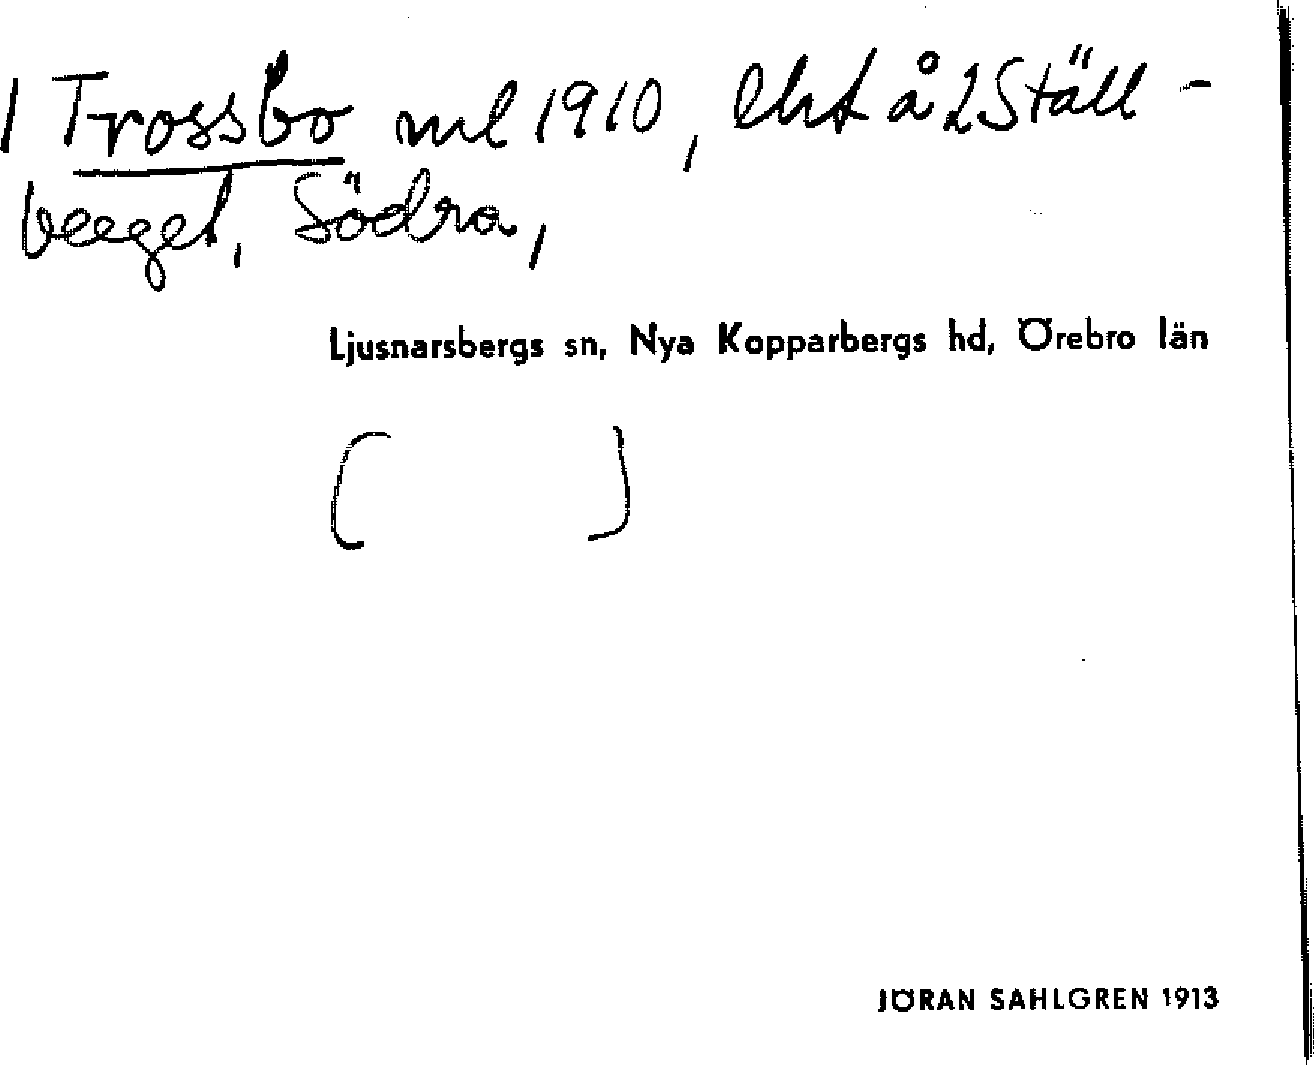 1 Trossbo ml 1910, lht å 2 Ställ-
berget, Södra,
Ljusnarsbergs sn, Nya Kopparbergs hd, Örebro län
[ ]
JÖRAN SAHLGREN 1913